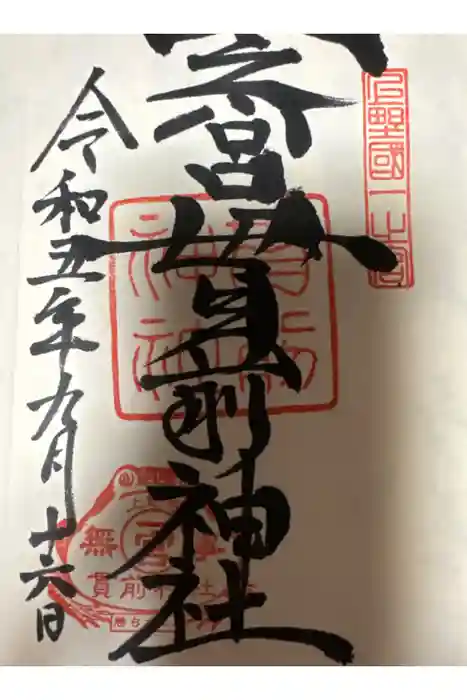 上野國一之宮
一之宮貫前神社
貫前神社
令和五年九月十六日
無
貫前神社